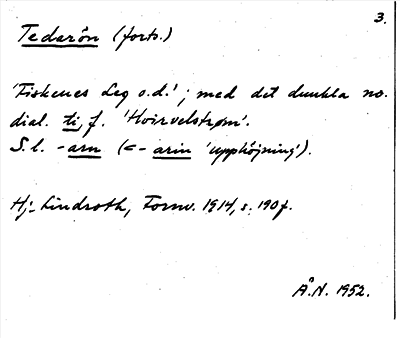 3.
Tedarön (forts.)
'Fiskenes Leg o.d.'; med det dunkla no.
dial. ti, f. 'Hvirvelstrøm'.
S.l. -arn (<- arin 'upphöjning').
Hj. Lindroth, Fornv. 1914, s. 190 f.
Å.N. 1952.